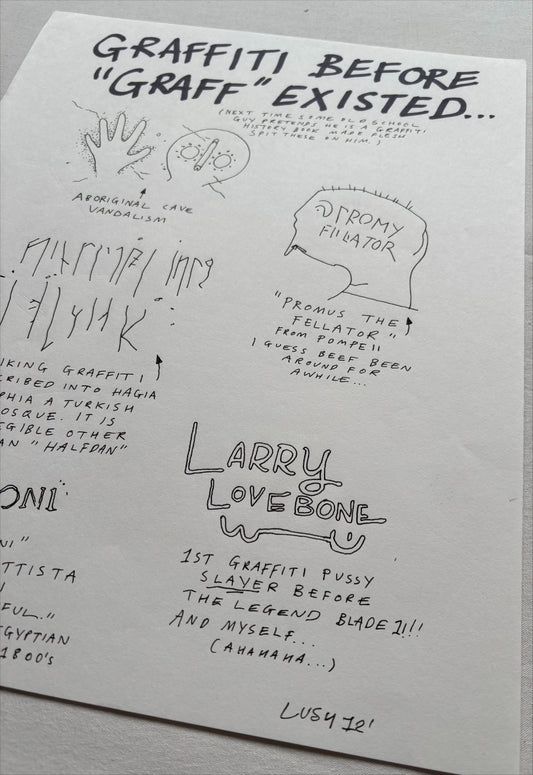 GRAFFITI BEFORE
"GRAFF" EXISTED...
(NEXT TIME SOME OLD SCHOOL
GUY PRETENDS HE IS A GRAFFITI
HISTORY BOOK MADE FLESH
SPIT THESE ON HIM.)
ABORIGINAL CAVE
VANDALISM
PROMY
FILLATOR
"PROMUS THE
FELLATOR"
FROM POMPEII
I GUESS BEEF BEEN
AROUND FOR
AWHILE...
IKING GRAFFITI
CRIBED INTO HAGIA
PHIA A TURKISH
OSQUE. IT IS
EGIBLE OTHER
AN "HALFDAN"
LARRY
LOVEBONE
1ST GRAFFITI PUSSY
SLAYER BEFORE
THE LEGEND BLADE 1!!!
AND MYSELF...
(AHAHAHA...)
ONI
NI"
TTISTA
FUL."
GYPTIAN
1800'S
LUSH 12'